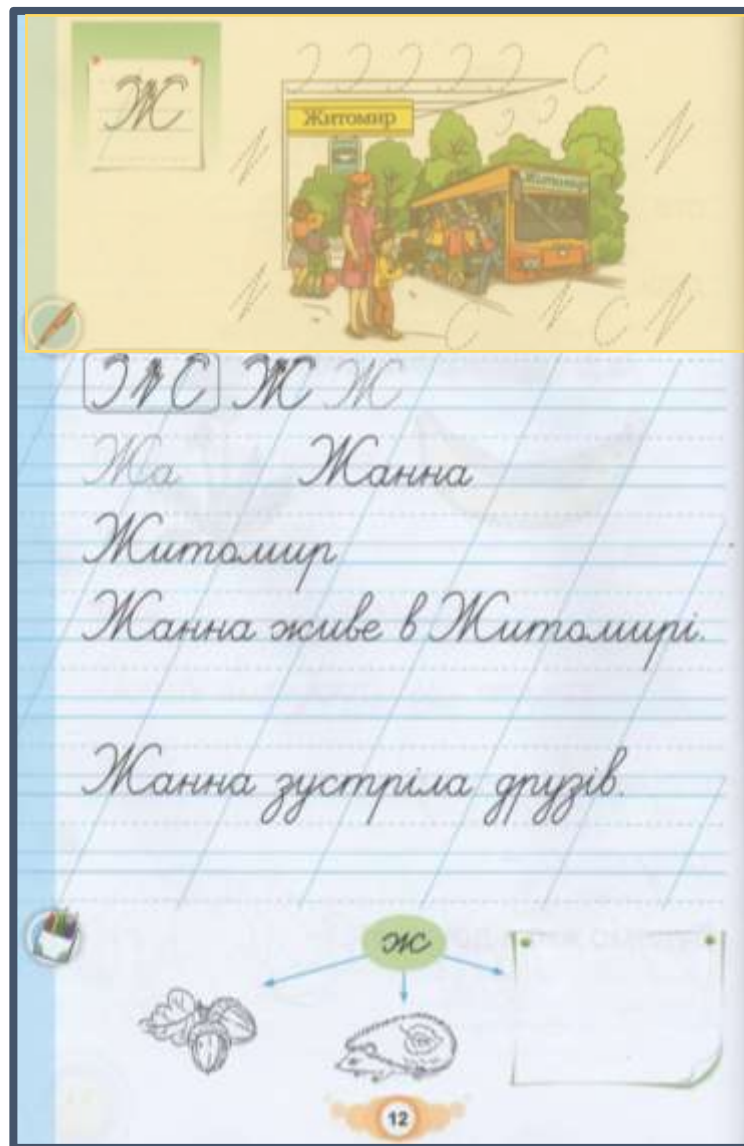 Ж
Житомир
Житомир
Ж Ж
Жа Жанна
Житомир
Жанна живе в Житомирі.
Жанна зустріла друзів.
ж
12